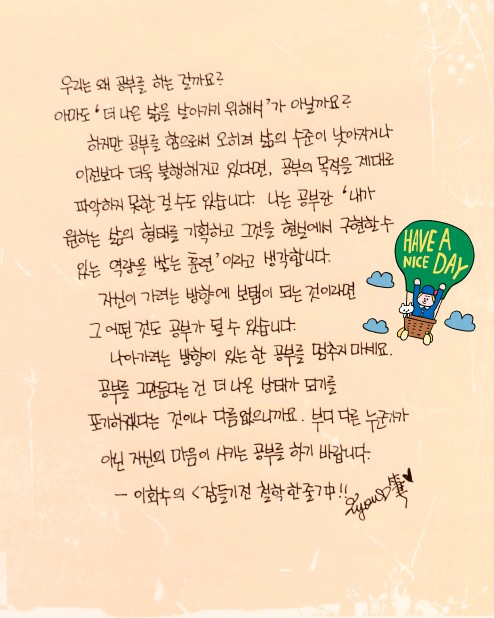 우리는 왜 공부를 하는 걸까요?
아마도 '더 나은 삶을 살아가기 위해서'가 아닐까요?
하지만 공부를 함으로써 오히려 삶의 수준이 낮아지거나
이전보다 더욱 불행해지고 있다면, 공부의 목적을 제대로
파악하지 못한 걸 수도 있습니다. 나는 공부란 '내가
원하는 삶의 형태를 기획하고 그것을 현실에서 구현할 수
있는 역량을 쌓는 훈련'이라고 생각합니다.
자신이 가려는 방향에 보탬이 되는 것이라면
그 어떤 것도 공부가 될 수 있습니다.
나아가려는 방향이 있는 한 공부를 멈추지 마세요.
공부를 그만둔다는 건 더 나은 상태가 되기를
포기하겠다는 것이나 다름없으니까요. 부디 다른 누군가가
아닌 자신의 마음이 시키는 공부를 하기 바랍니다.
- 이화수의 <잠들기 전 철학 한 줄>中!!
HAVE A
NICE DAY